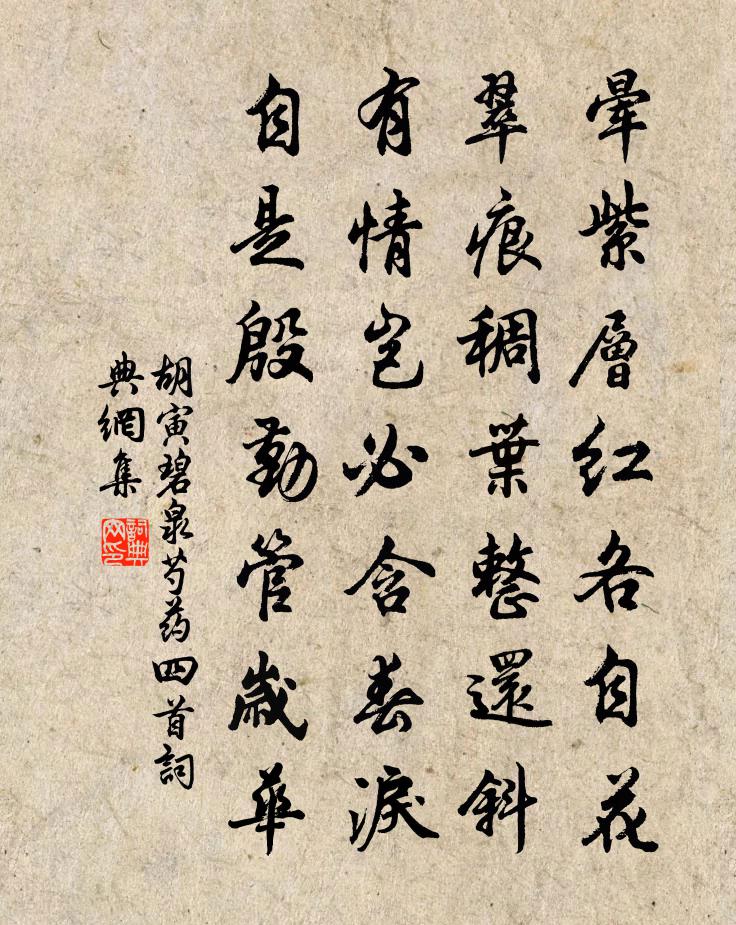 暈紫層紅各自花
翠痕稠葉整還斜
有情岂必含春淚
自是殷勤管歲華
胡寅碧泉芍药四首詞
典網集
詞典
网印